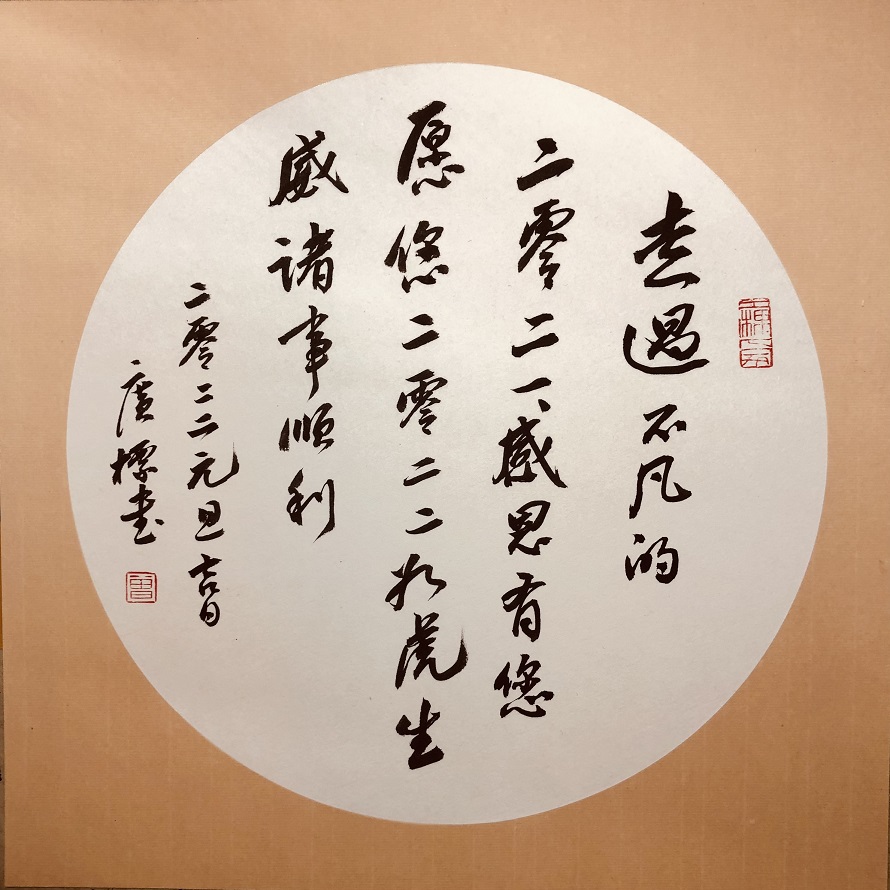 走過不凡的
二零二一感恩有您
愿您二零二二如虎生
威诸事顺利
二零二二元旦吉日
廣標書